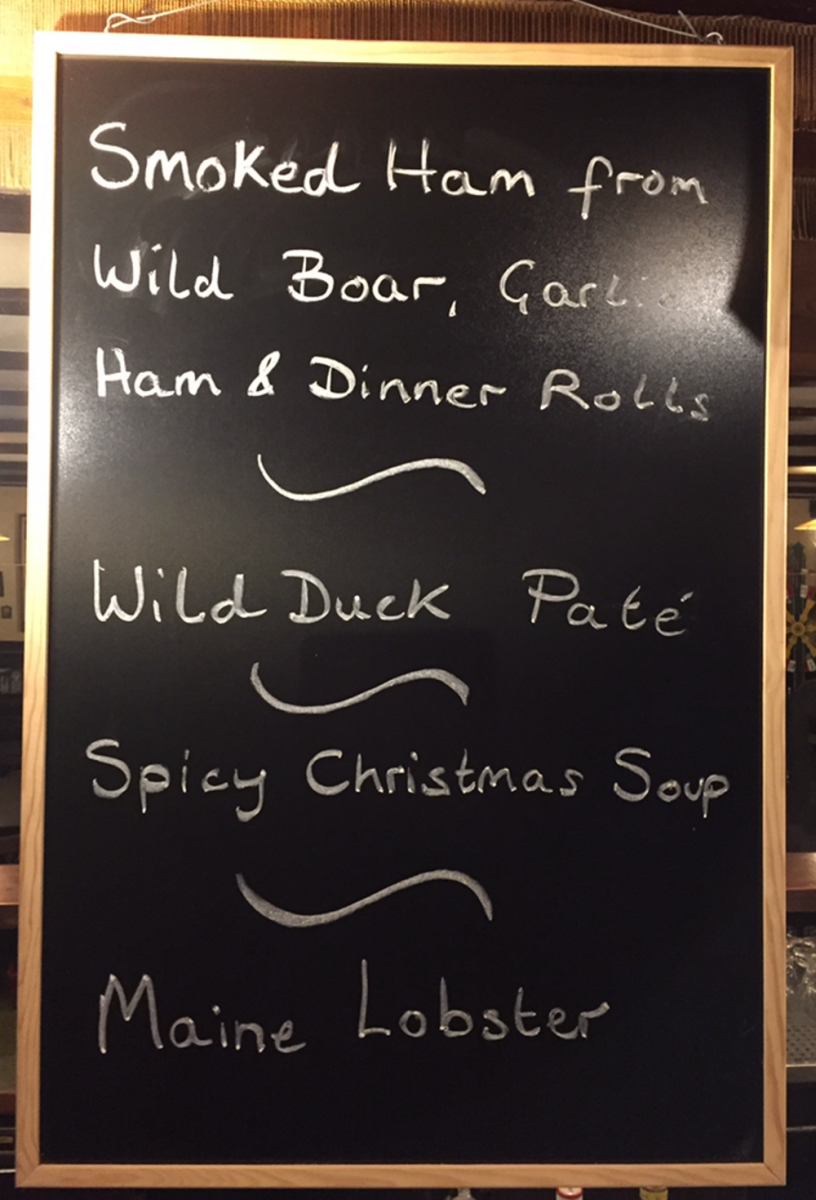 Smoked Ham from
Wild Boar, Garlic
Ham & Dinner Rolls
Wild Duck Paté
Spicy Christmas Soup
Maine Lobster